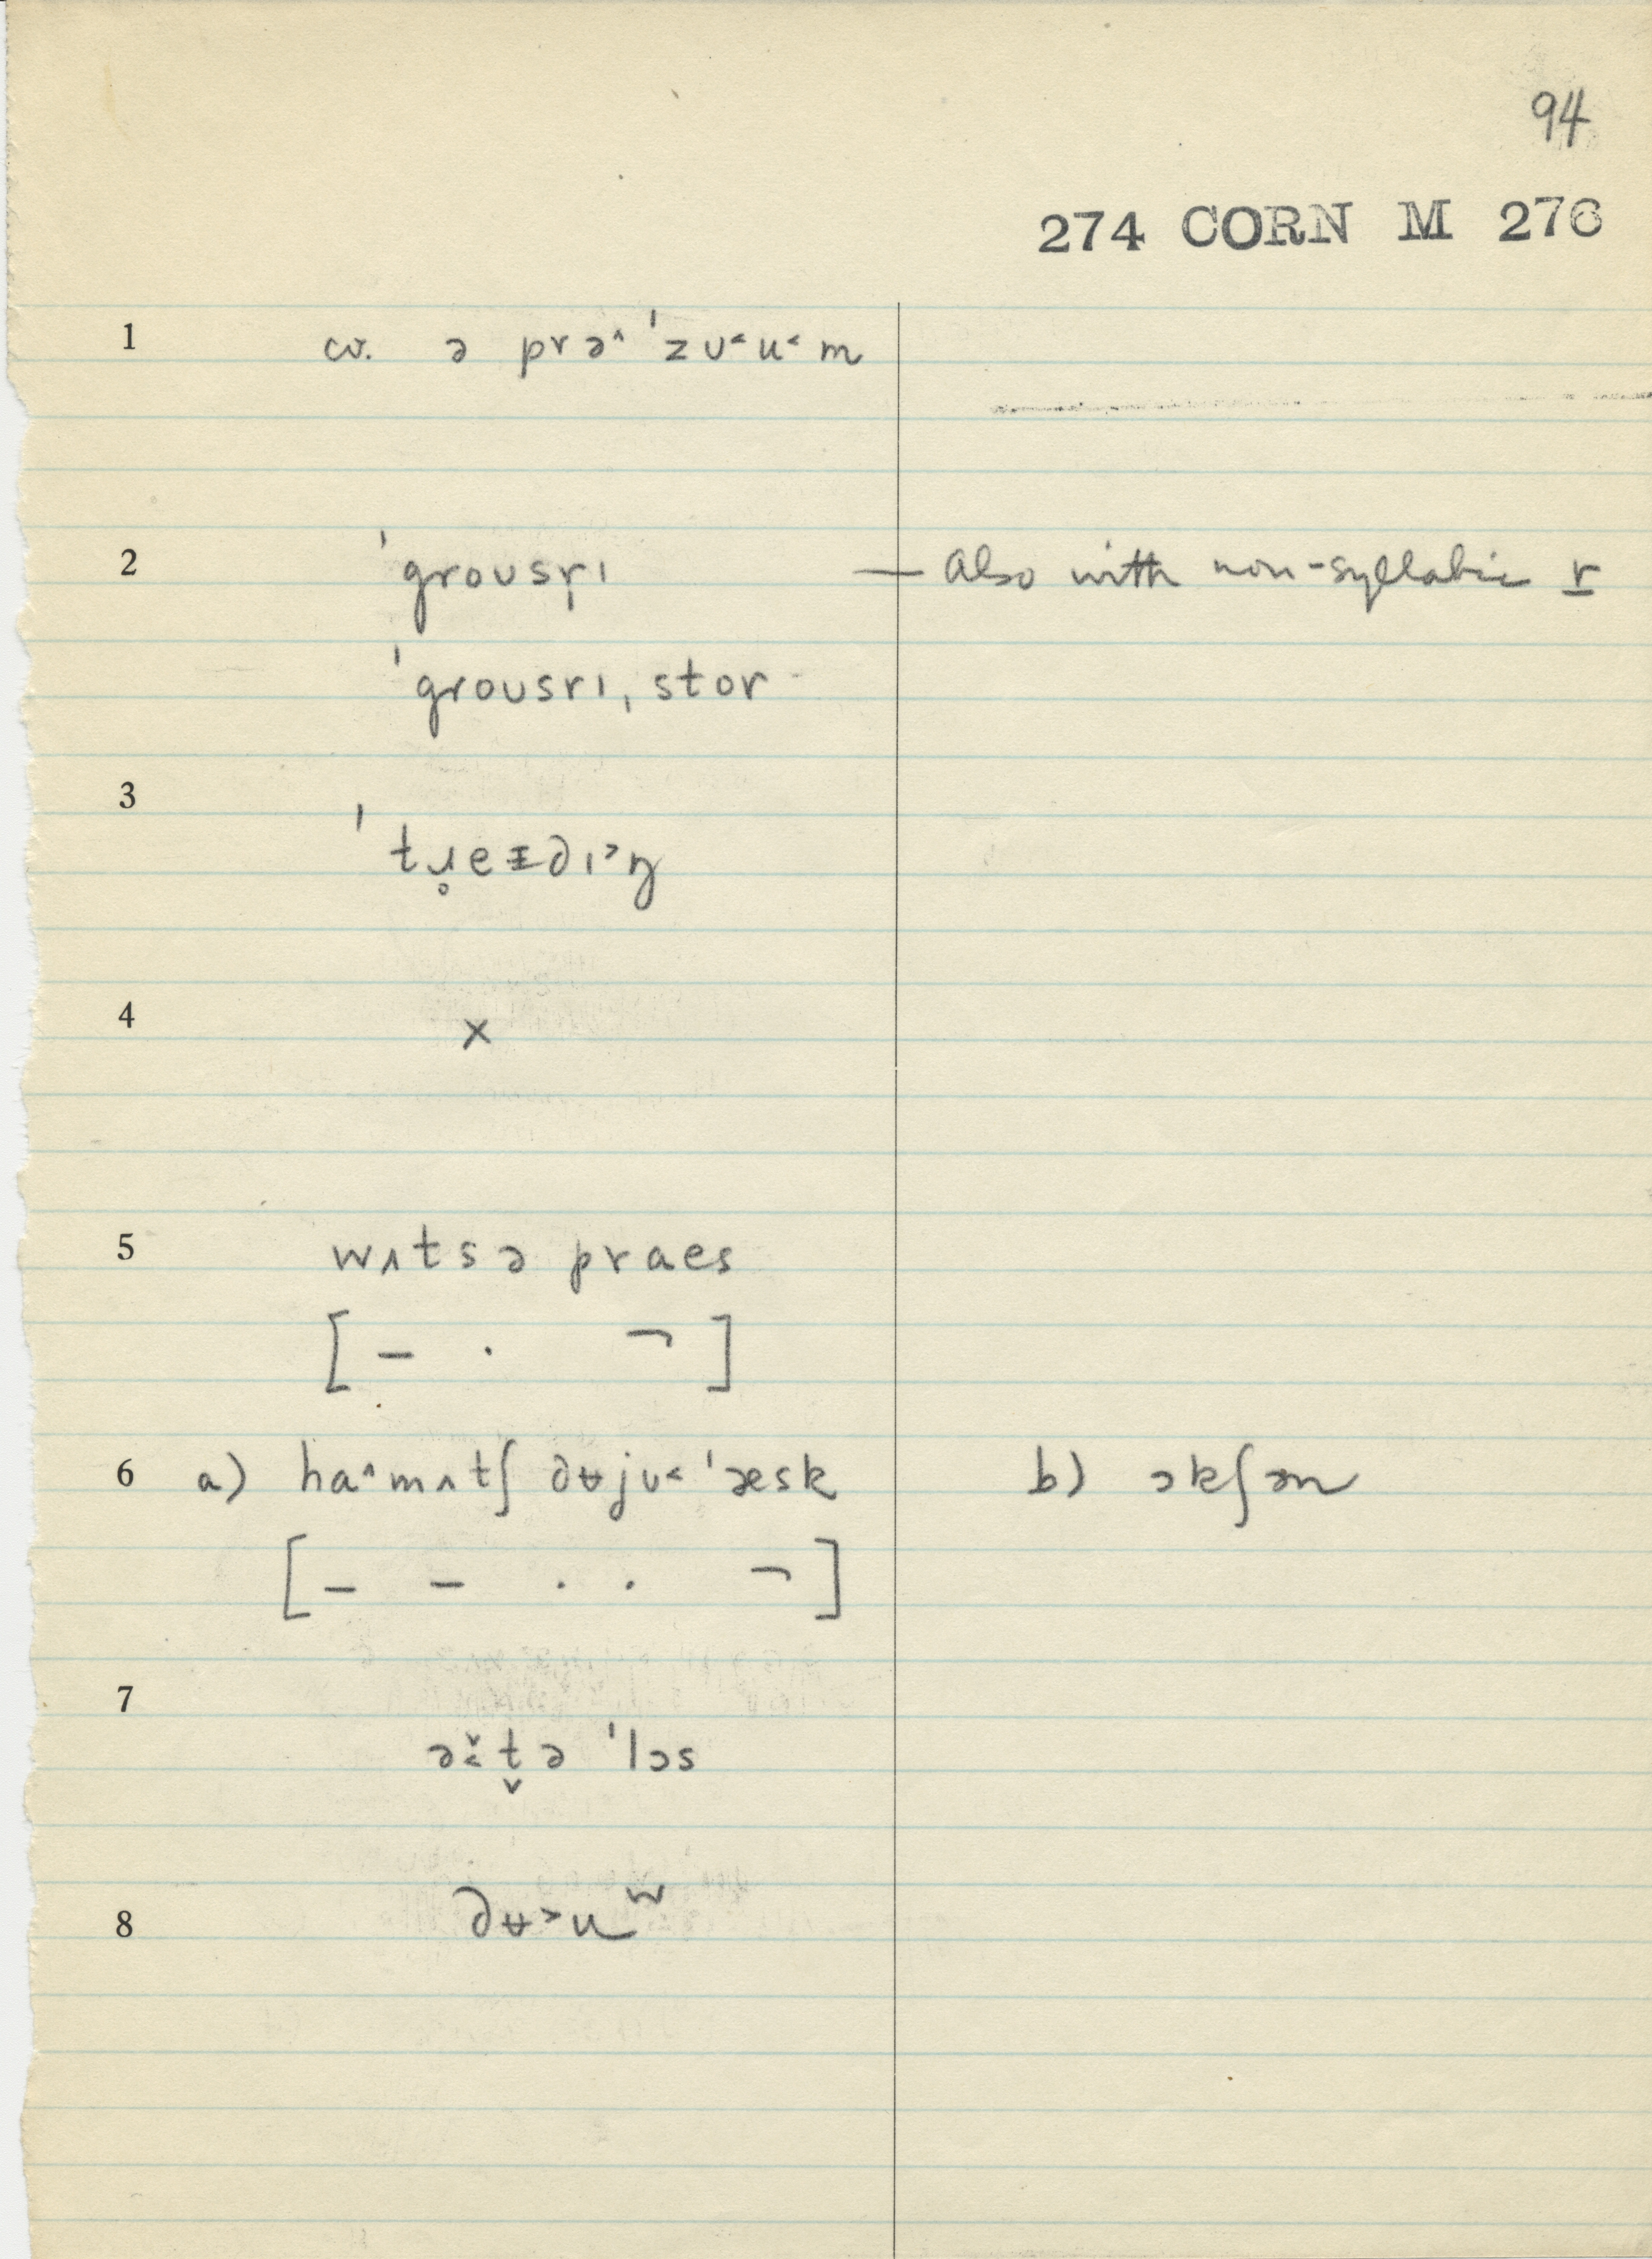 94
274 CORN M 276
1 cv. ə prə˄ ˈzʊ˂u˂m
2 ˈgroʊsr̩ɪ — Also with non-syllabic r
ˈgroʊsrɪˌstor
3 ˈtɹ̥eᵻdɪ˃ŋ
4 x
5 wʌtsə praes
[ – · ¬ ]
6 a) ha˄mʌtʃ dʉjʊ˂ ˈæsk b) ɔkʃən
[ – – · · ¬ ]
7 ə˂̌t̬ə ˈlɔs
8 dʉ˃uʷ